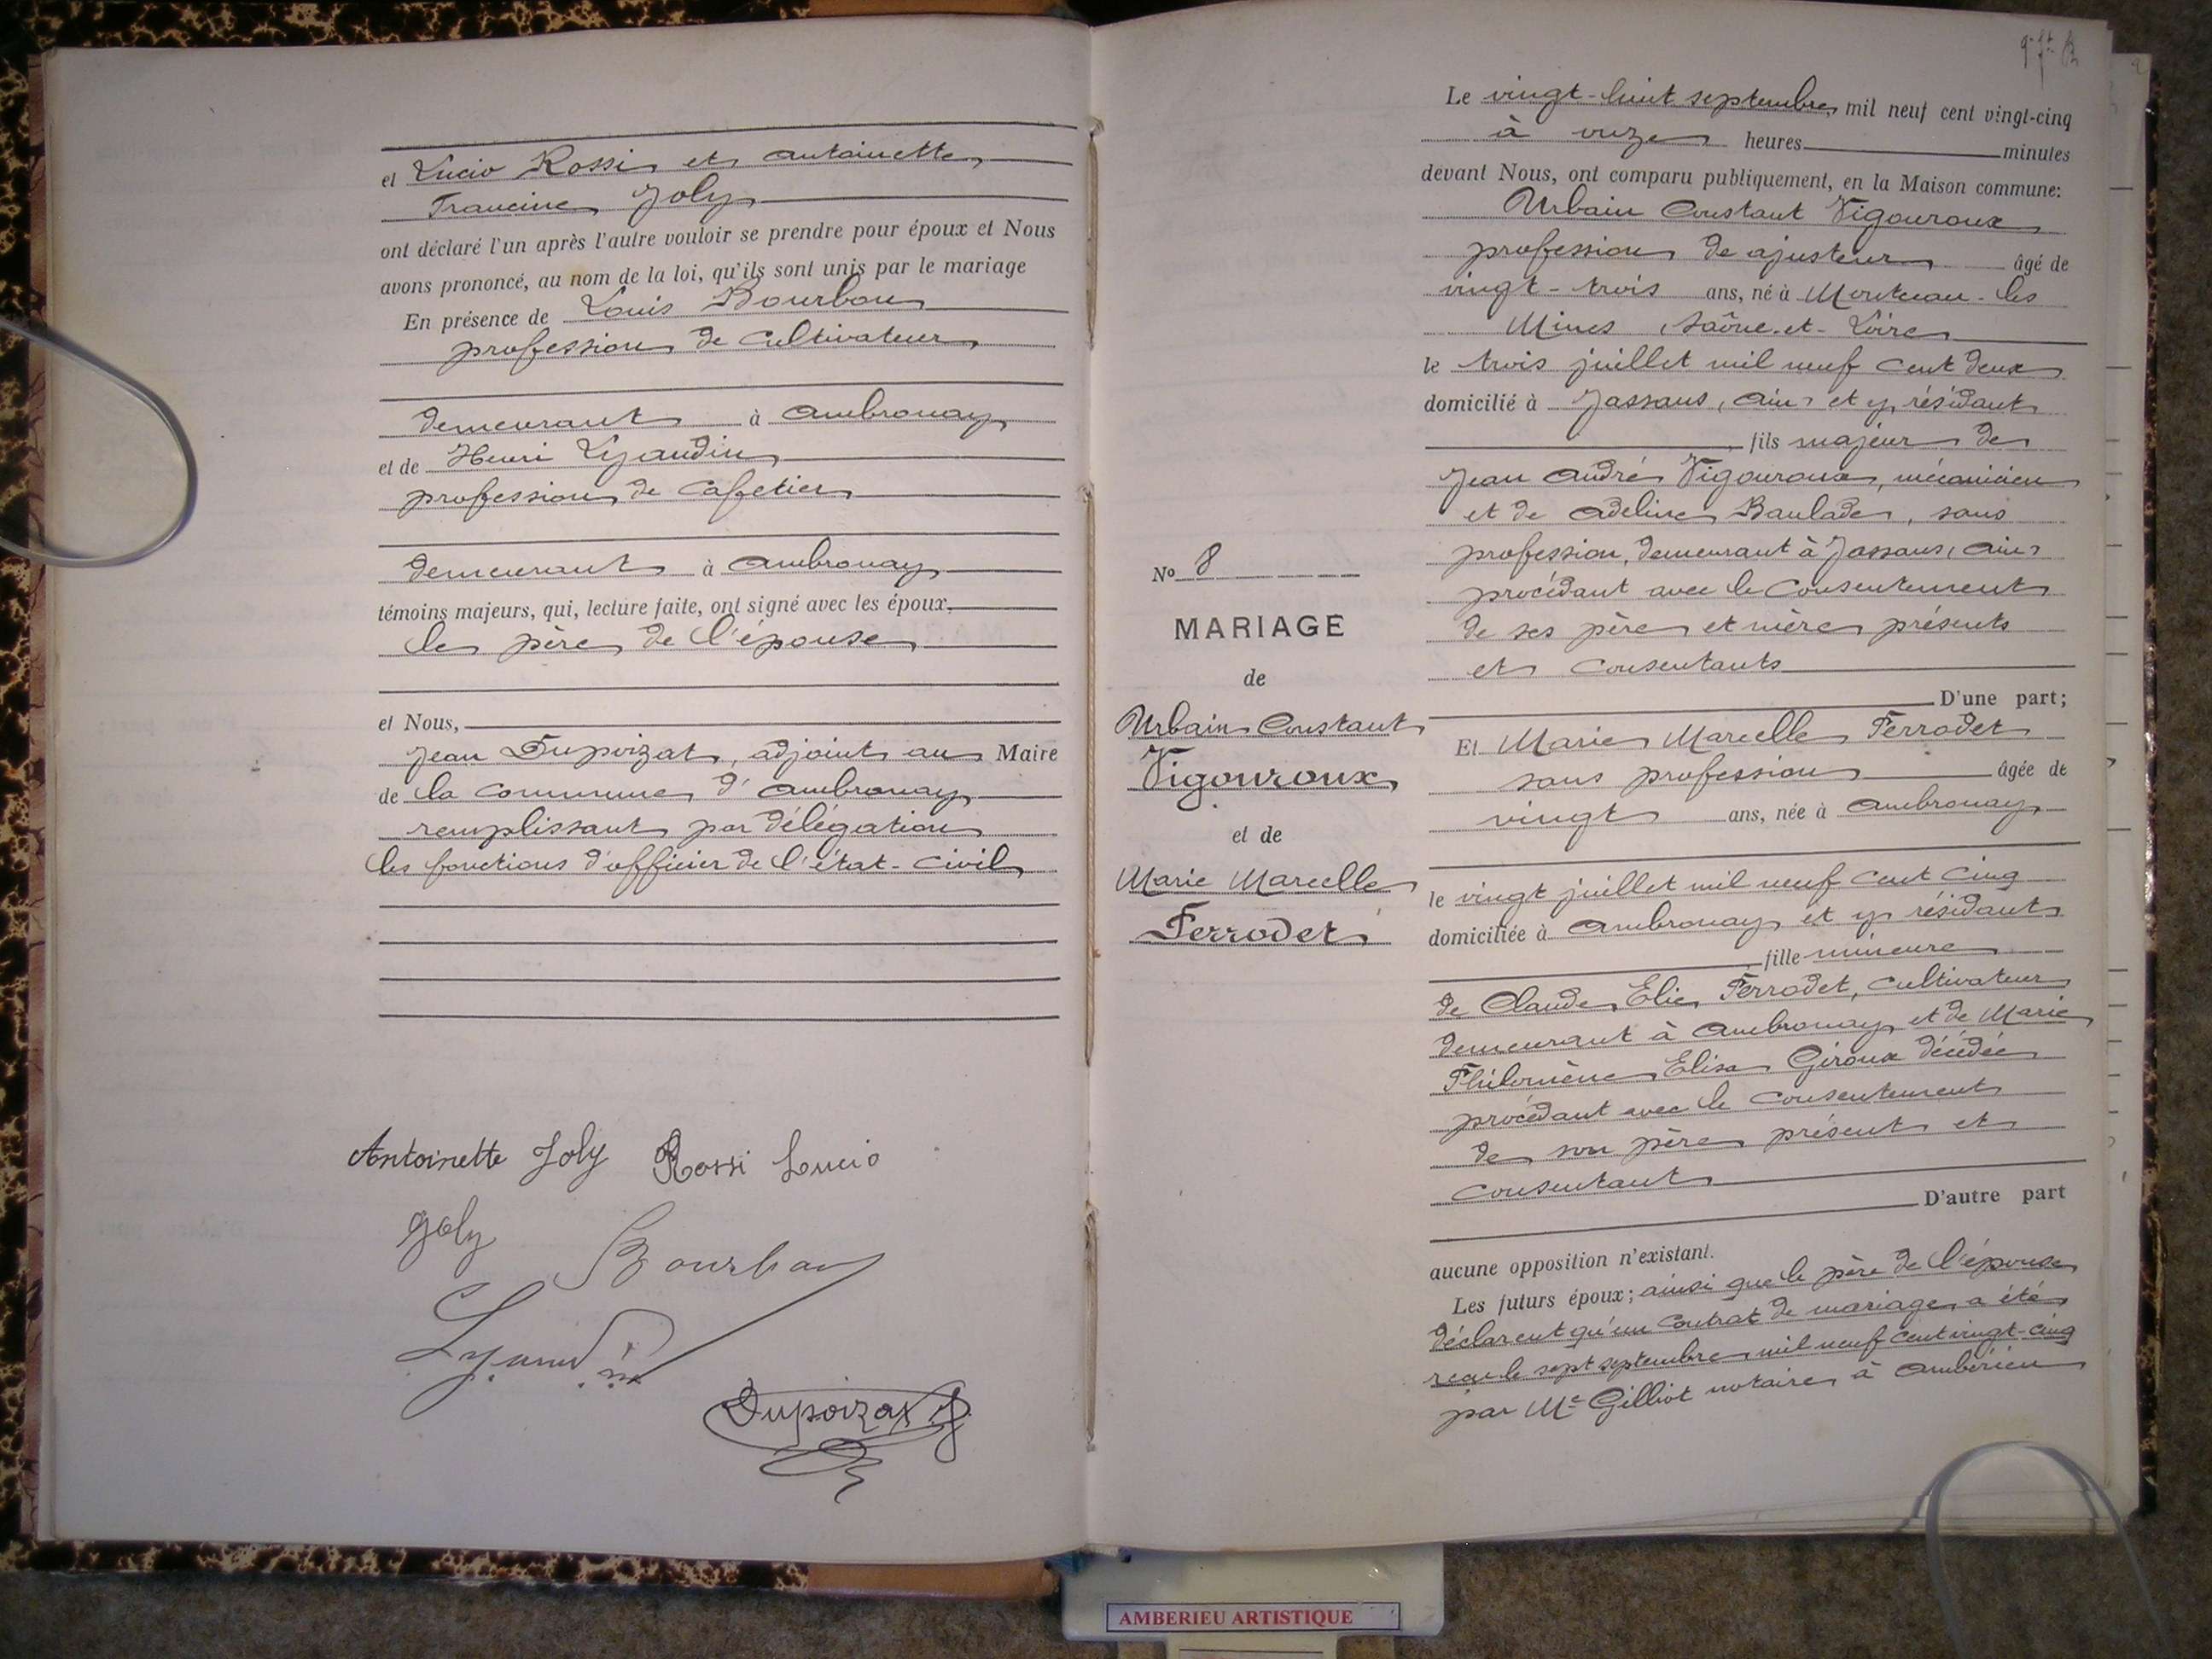 et Lucio Rossi et Antoinette
Francine Joly
ont déclaré l'un après l'autre vouloir se prendre pour époux et Nous
avons prononcé, au nom de la loi, qu'ils sont unis par le mariage
En présence de Louis Bourbon
profession de cultivateur
demeurant à Ambronay
et de Henri Lyaudin
profession de cafetier
demeurant à Ambronay
témoins majeurs, qui, lecture faite, ont signé avec les époux,
le père de l'épouse
et Nous,
Jean Dupoizat, adjoint au Maire
de la commune d'Ambronay
remplissant par délégation
les fonctions d'officier de l'état-civil
Antoinette Joly Rossi Lucio
Joly
Bourbon
Lyaudin
Dupoizat
No 8
MARIAGE
de
Urbain Constant
Vigouroux
et de
Marie Marcelle
Ferrodet
Le vingt-huit septembre, mil neuf cent vingt-cinq
à onze heures minutes
devant Nous, ont comparu publiquement, en la Maison commune:
Urbain Constant Vigouroux
profession de ajusteur âgé de
vingt-trois ans, né à Montceau-les
Mines, Saône-et-Loire
le trois juillet mil neuf cent deux
domicilié à Jassans, Ain, et y résidant
fils majeur de
Jean André Vigouroux, mécanicien
et de Adeline Baulade, sans
profession, demeurant à Jassans, Ain,
procédant avec le consentement
de ses père et mère présents
et consentants
D'une part;
Et Marie Marcelle Ferrodet
sans profession âgée de
vingt ans, née à Ambronay
le vingt juillet mil neuf cent cinq
domiciliée à Ambronay et y résidant
fille mineure
de Claude Elie Ferrodet, cultivateur
demeurant à Ambronay et de Marie
Philomène Elisa Giroux décédée
procédant avec le consentement
de son père présent et
consentant
D'autre part
aucune opposition n'existant.
Les futurs époux; ainsi que le père de l'épouse
déclarent qu'un contrat de mariage a été
reçu le sept septembre mil neuf cent vingt-cinq
par Me Gilliot notaire à Ambérieu
AMBERIEU ARTISTIQUE